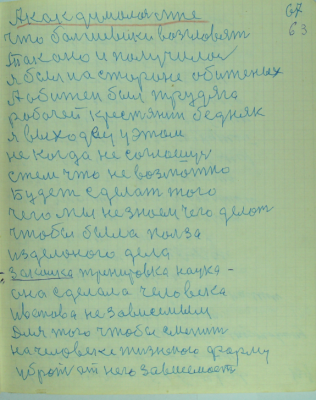 А как думалось те
67
63
что болшевики возглавят
Так оно и получилос
я был на стороне обиженых
А обижен был трудяга
рабочей крестянин бедняк
я выходец у этом
не когда не соглашус
с тем что не возможно
Будет сделат того
чего мы не знаем чего делат
чтобы была полза
из делоного дела
Закалка тренировка наука -
она сделала человека
Иванова не зависемым
Для того чтобы сменит
на человеке жизненую форму
убрат от него зависемост